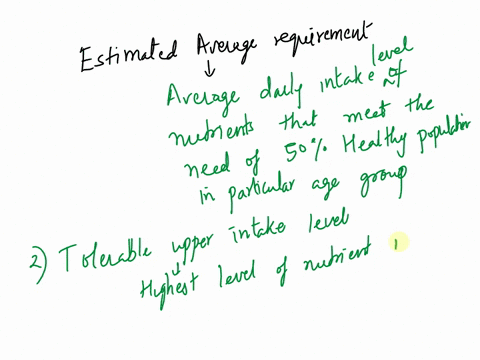 Estimated Average requirement
Average daily intake level of
nutrients that meet the
need of 50% Healthy population
in particular age group
2) Tolerable upper intake level
Highest level of nutrient i